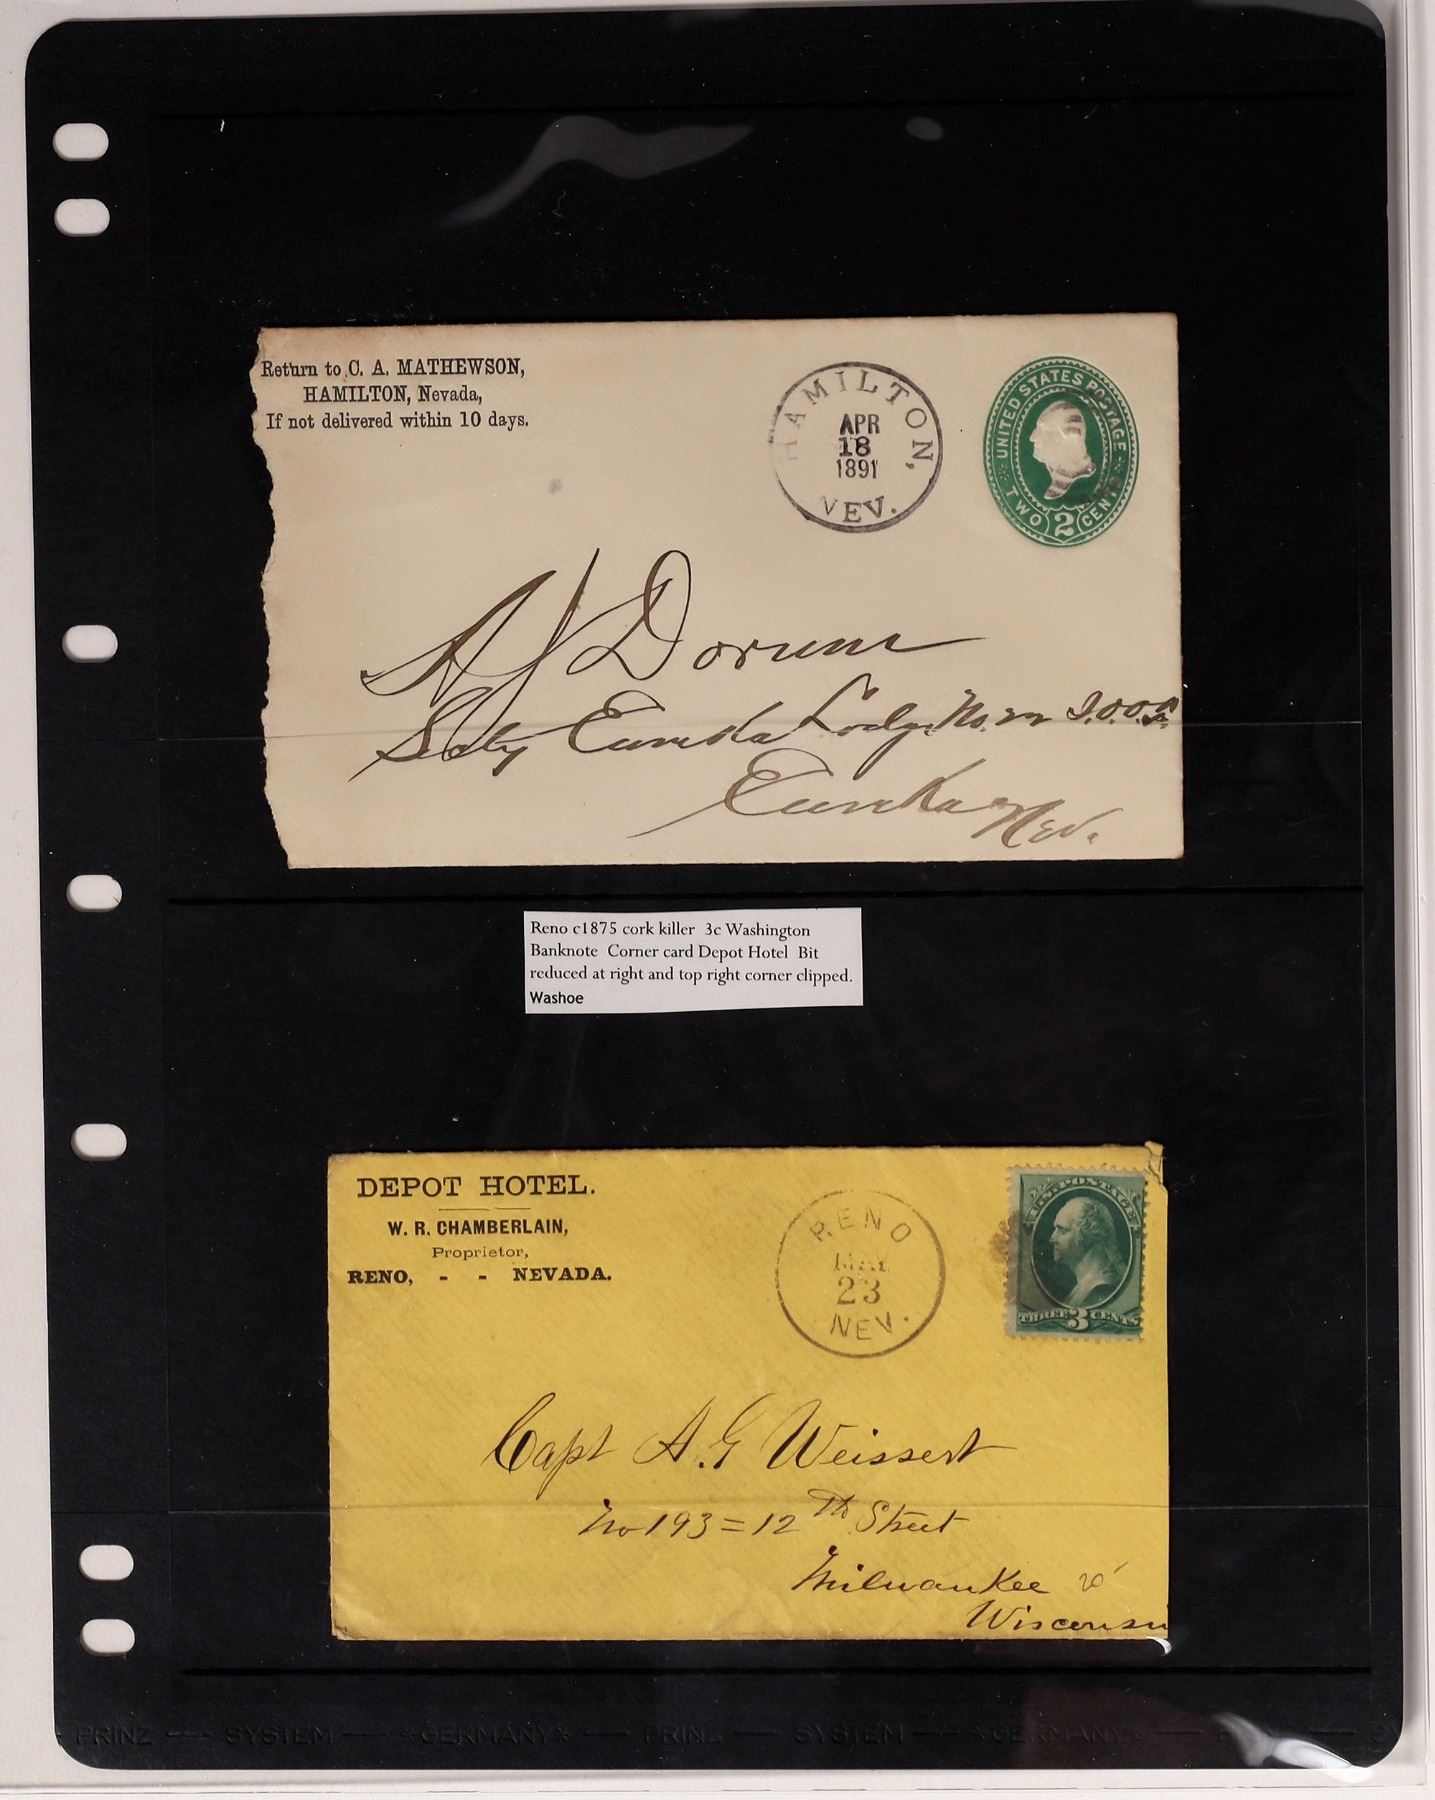 Return to C. A. MATHEWSON,
HAMILTON, Nevada,
If not delivered within 10 days.
HAMILTON,
APR
18
1891
NEV.
UNITED STATES POSTAGE
TWO 2 CENTS
A J Dorum
Eureka Lodge No. 22 I.O.O.F.
Eureka
Nev.
Reno c1875 cork killer 3c Washington
Banknote Corner card Depot Hotel Bit
reduced at right and top right corner clipped.
Washoe
DEPOT HOTEL.
W. R. CHAMBERLAIN,
Proprietor,
RENO, - - NEVADA.
RENO
MAR
23
NEV.
U.S. POSTAGE
THREE 3 CENTS
Capt A. G Weissert
No 193 = 12th Street
Milwaukee
Wisconsin
PRINZ — SYSTEM — *GERMANY* — PRINZ — SYSTEM — *GERMANY* —